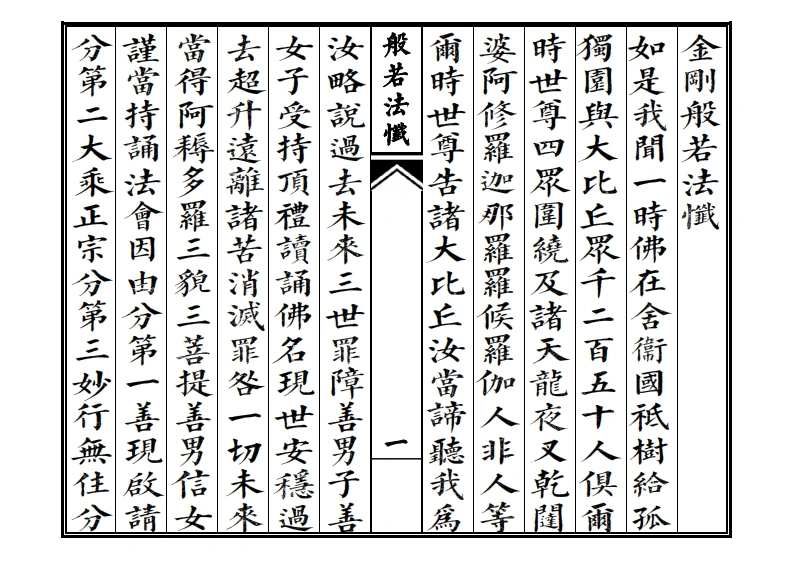 金剛般若法懺
如是我聞一時佛在舍衞國祇樹給孤
獨園與大比丘眾千二百五十人俱爾
時世尊四眾圍繞及諸天龍夜叉乾闥
婆阿修羅迦那羅羅候羅伽人非人等
爾時世尊告諸大比丘汝當諦聽我為
般若法懺
一
汝略說過去未來三世罪障善男子善
女子受持頂禮讀誦佛名現世安穩過
去超升遠離諸苦消滅罪咎一切未來
當得阿耨多羅三貌三菩提善男信女
謹當持誦法會因由分第一善現啟請
分第二大乘正宗分第三妙行無住分